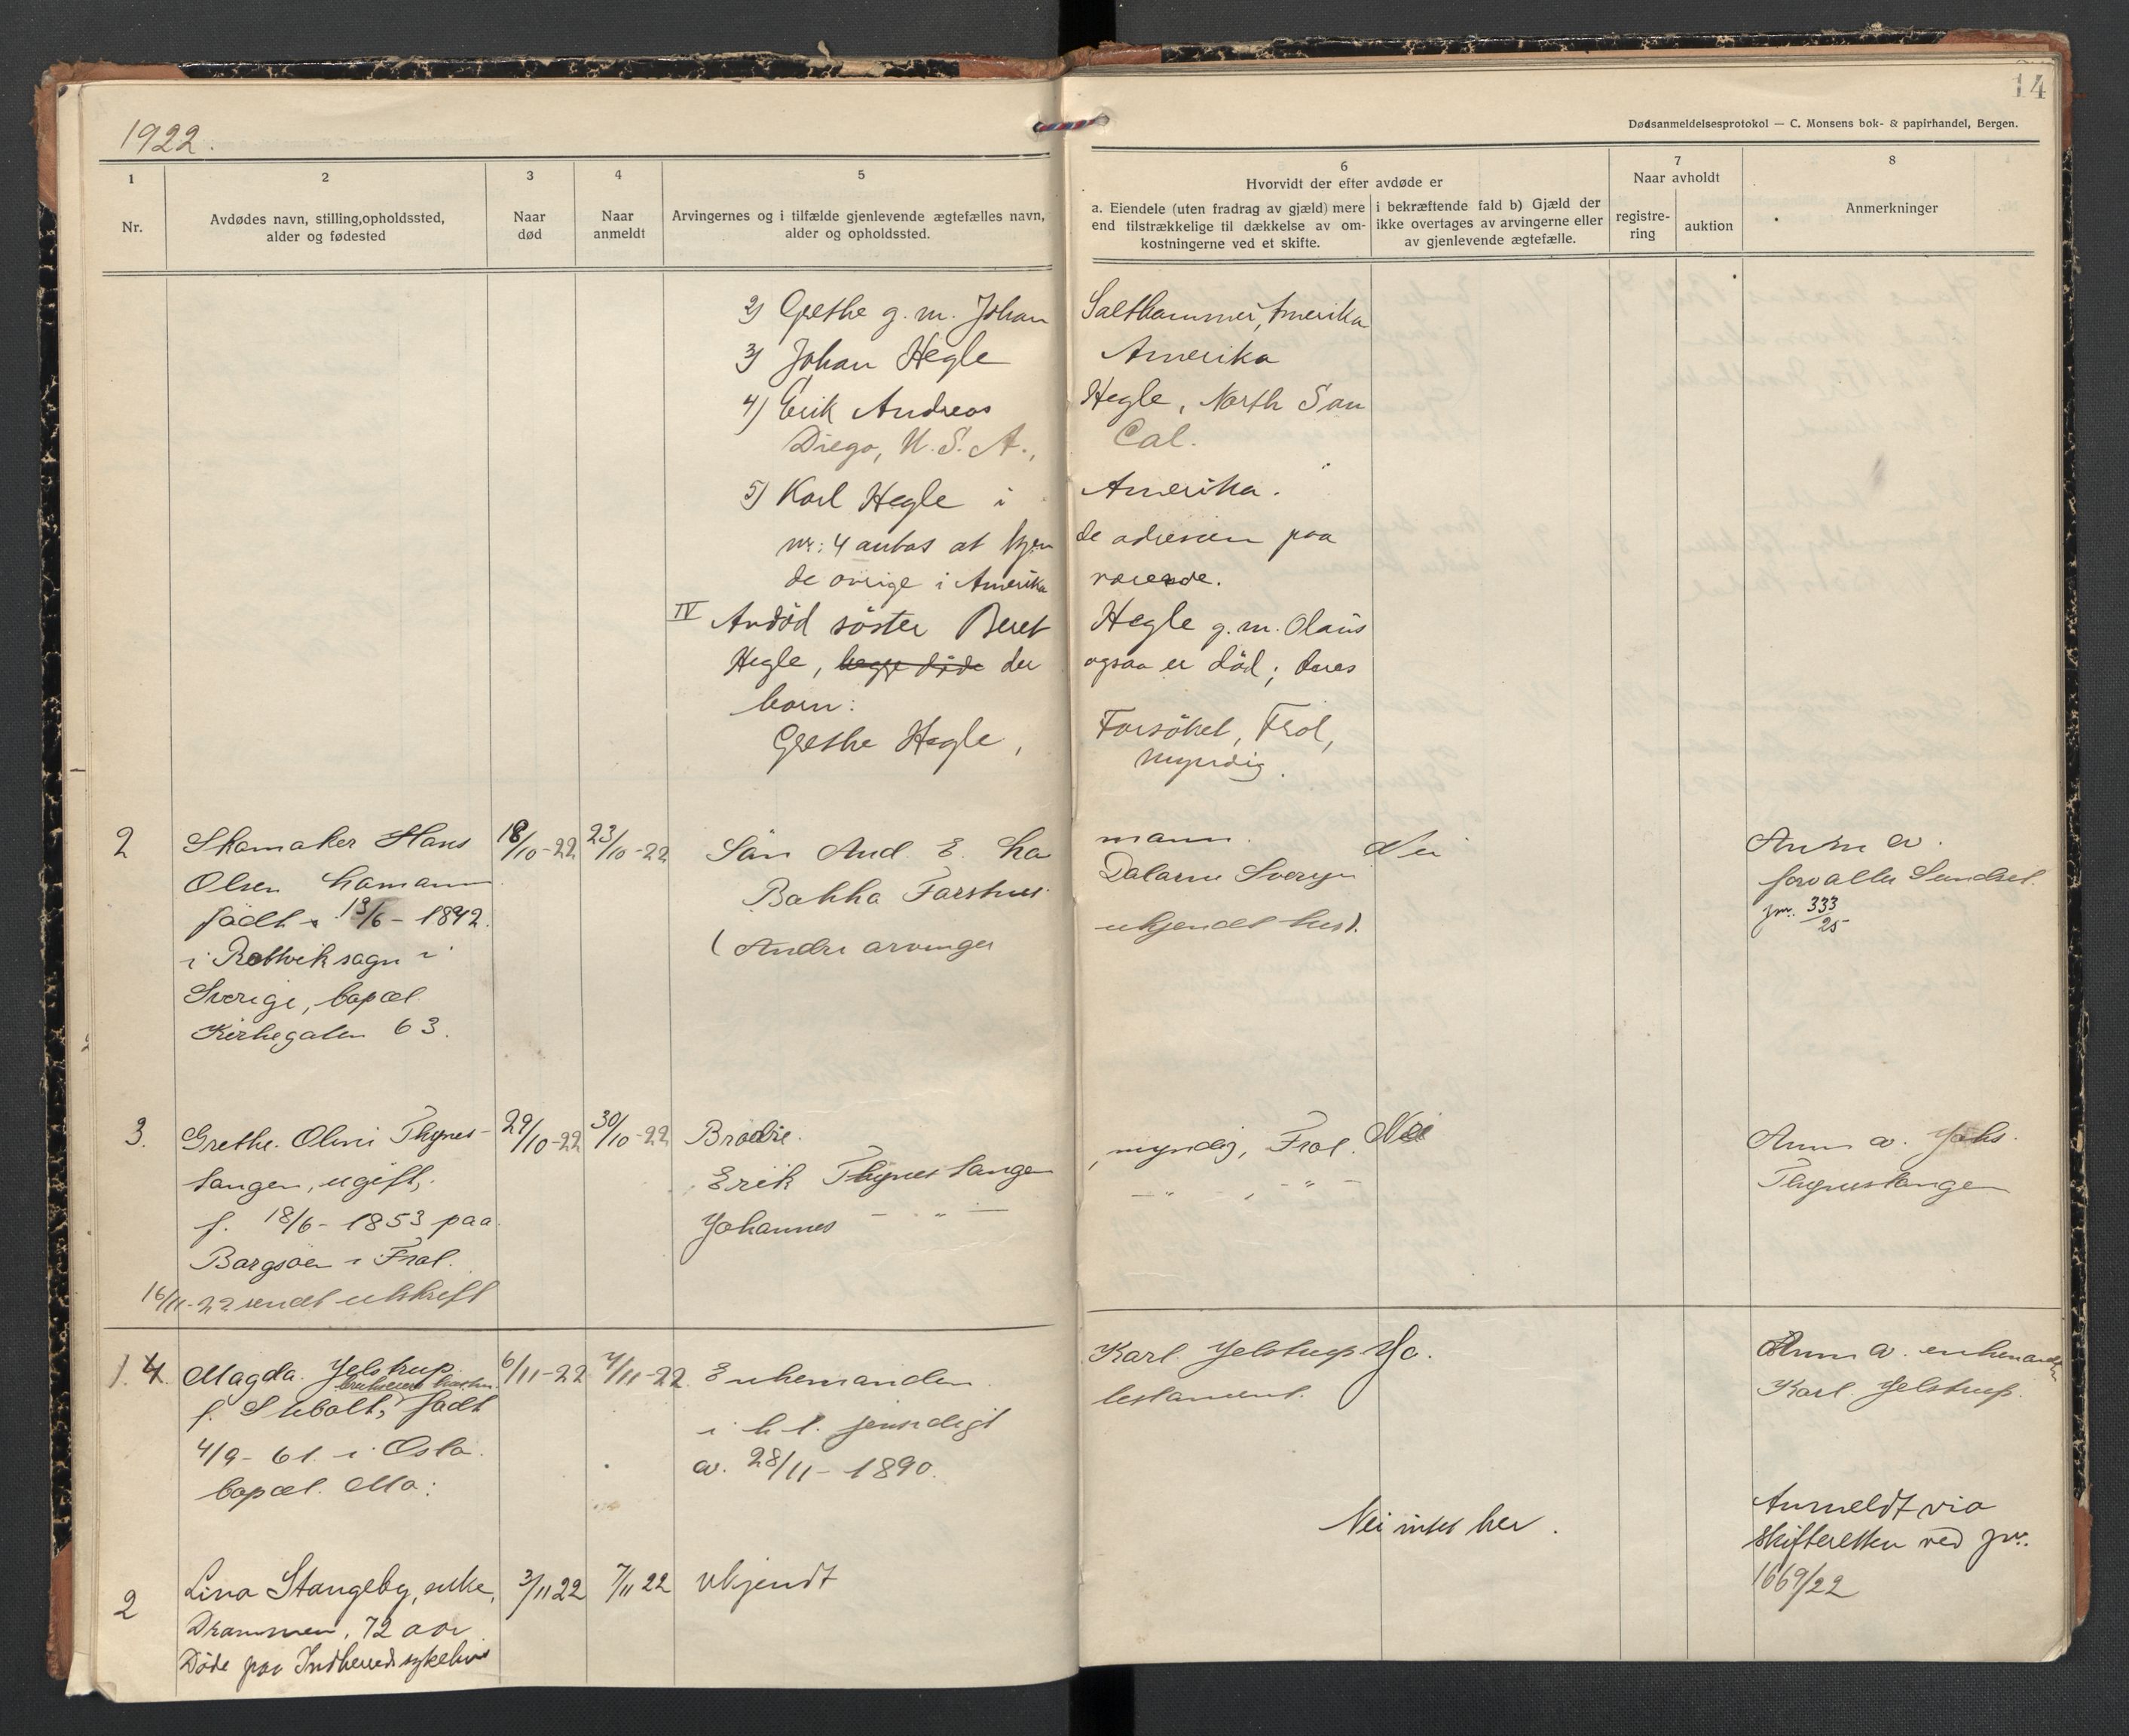 14
Dødsanmeldelsesprotokol — C. Monsens bok- & papirhandel, Bergen.
1922.
1
Nr.
2
Avdødes navn, stilling, opholdssted,
alder og fødested
3
Naar
død
4
Naar
anmeldt
5
Arvingernes og i tilfælde gjenlevende ægtefælles navn,
alder og opholdssted.
6
Hvorvidt der efter avdøde er
a. Eiendele (uten fradrag av gjæld) mere
end tilstrækkelige til dækkelse av om-
kostningerne ved et skifte.
i bekræftende fald b) Gjæld der
ikke overtages av arvingerne eller
av gjenlevende ægtefælle.
7
Naar avholdt
registre-
ring
auktion
8
Anmerkninger
2) Grethe g. m. Johan Salthammer, Amerika
3) Johan Hegle Amerika
4) Erik Andreas Hegle, North San
Diego, U. S. A., Cal.
5) Karl Hegle i Amerika.
nr: 4 antas at kjen de adressen paa
de øvrige i Amerika værende.
IV Avdød søster Beret Hegle g. m. Olaus
Hegle, der ogsaa er død; deres
barn:
Grethe Hegle, Forsøket, Frol,
myndig.
2
Skomaker Hans
Olsen
født 13/6 - 1842.
i Rettvik sogn i
Sverige, bopæl
Kirkegaten 63.
18/10-22
23/10-22
Søn And. E. Ha mann.
Bakka Dalarne Sverge
(Andre arvinger ukjendt her).
Nei
Anm av.
forvalter Sundset.
jnr. 333/25
3.
Grethe Oline Thynes-
tangen, ugift,
f. 18/6 - 1853 paa
Borgsöen i Frol.
16/11-22 sendt utskrift
29/10-22
30/10-22
Brødre.
Erik Thynestangen, myndig, Frol.
Johannes — " — — " —
Nei
Anm av. Johs.
Thynestangen
1. 4.
Magda Jelstrup
f. Sibolt, født
4/9 - 61 i Oslo.
bopæl. Mo:
6/11-22
7/11-22
Enkemanden Karl Jelstrup
i h. t. gjensidigt testament.
av. 28/11 - 1890.
Ja.
Anm av. enkemanden
Karl Jelstrup.
2
Lina Stangeby, enke,
Drammen, 72 aar
Døde paa Indherreds sykehus
3/11 22
7/11 22
Ukjendt
Nei intet her.
Anmeldt via
skifteretten ved jnr.
1669/22